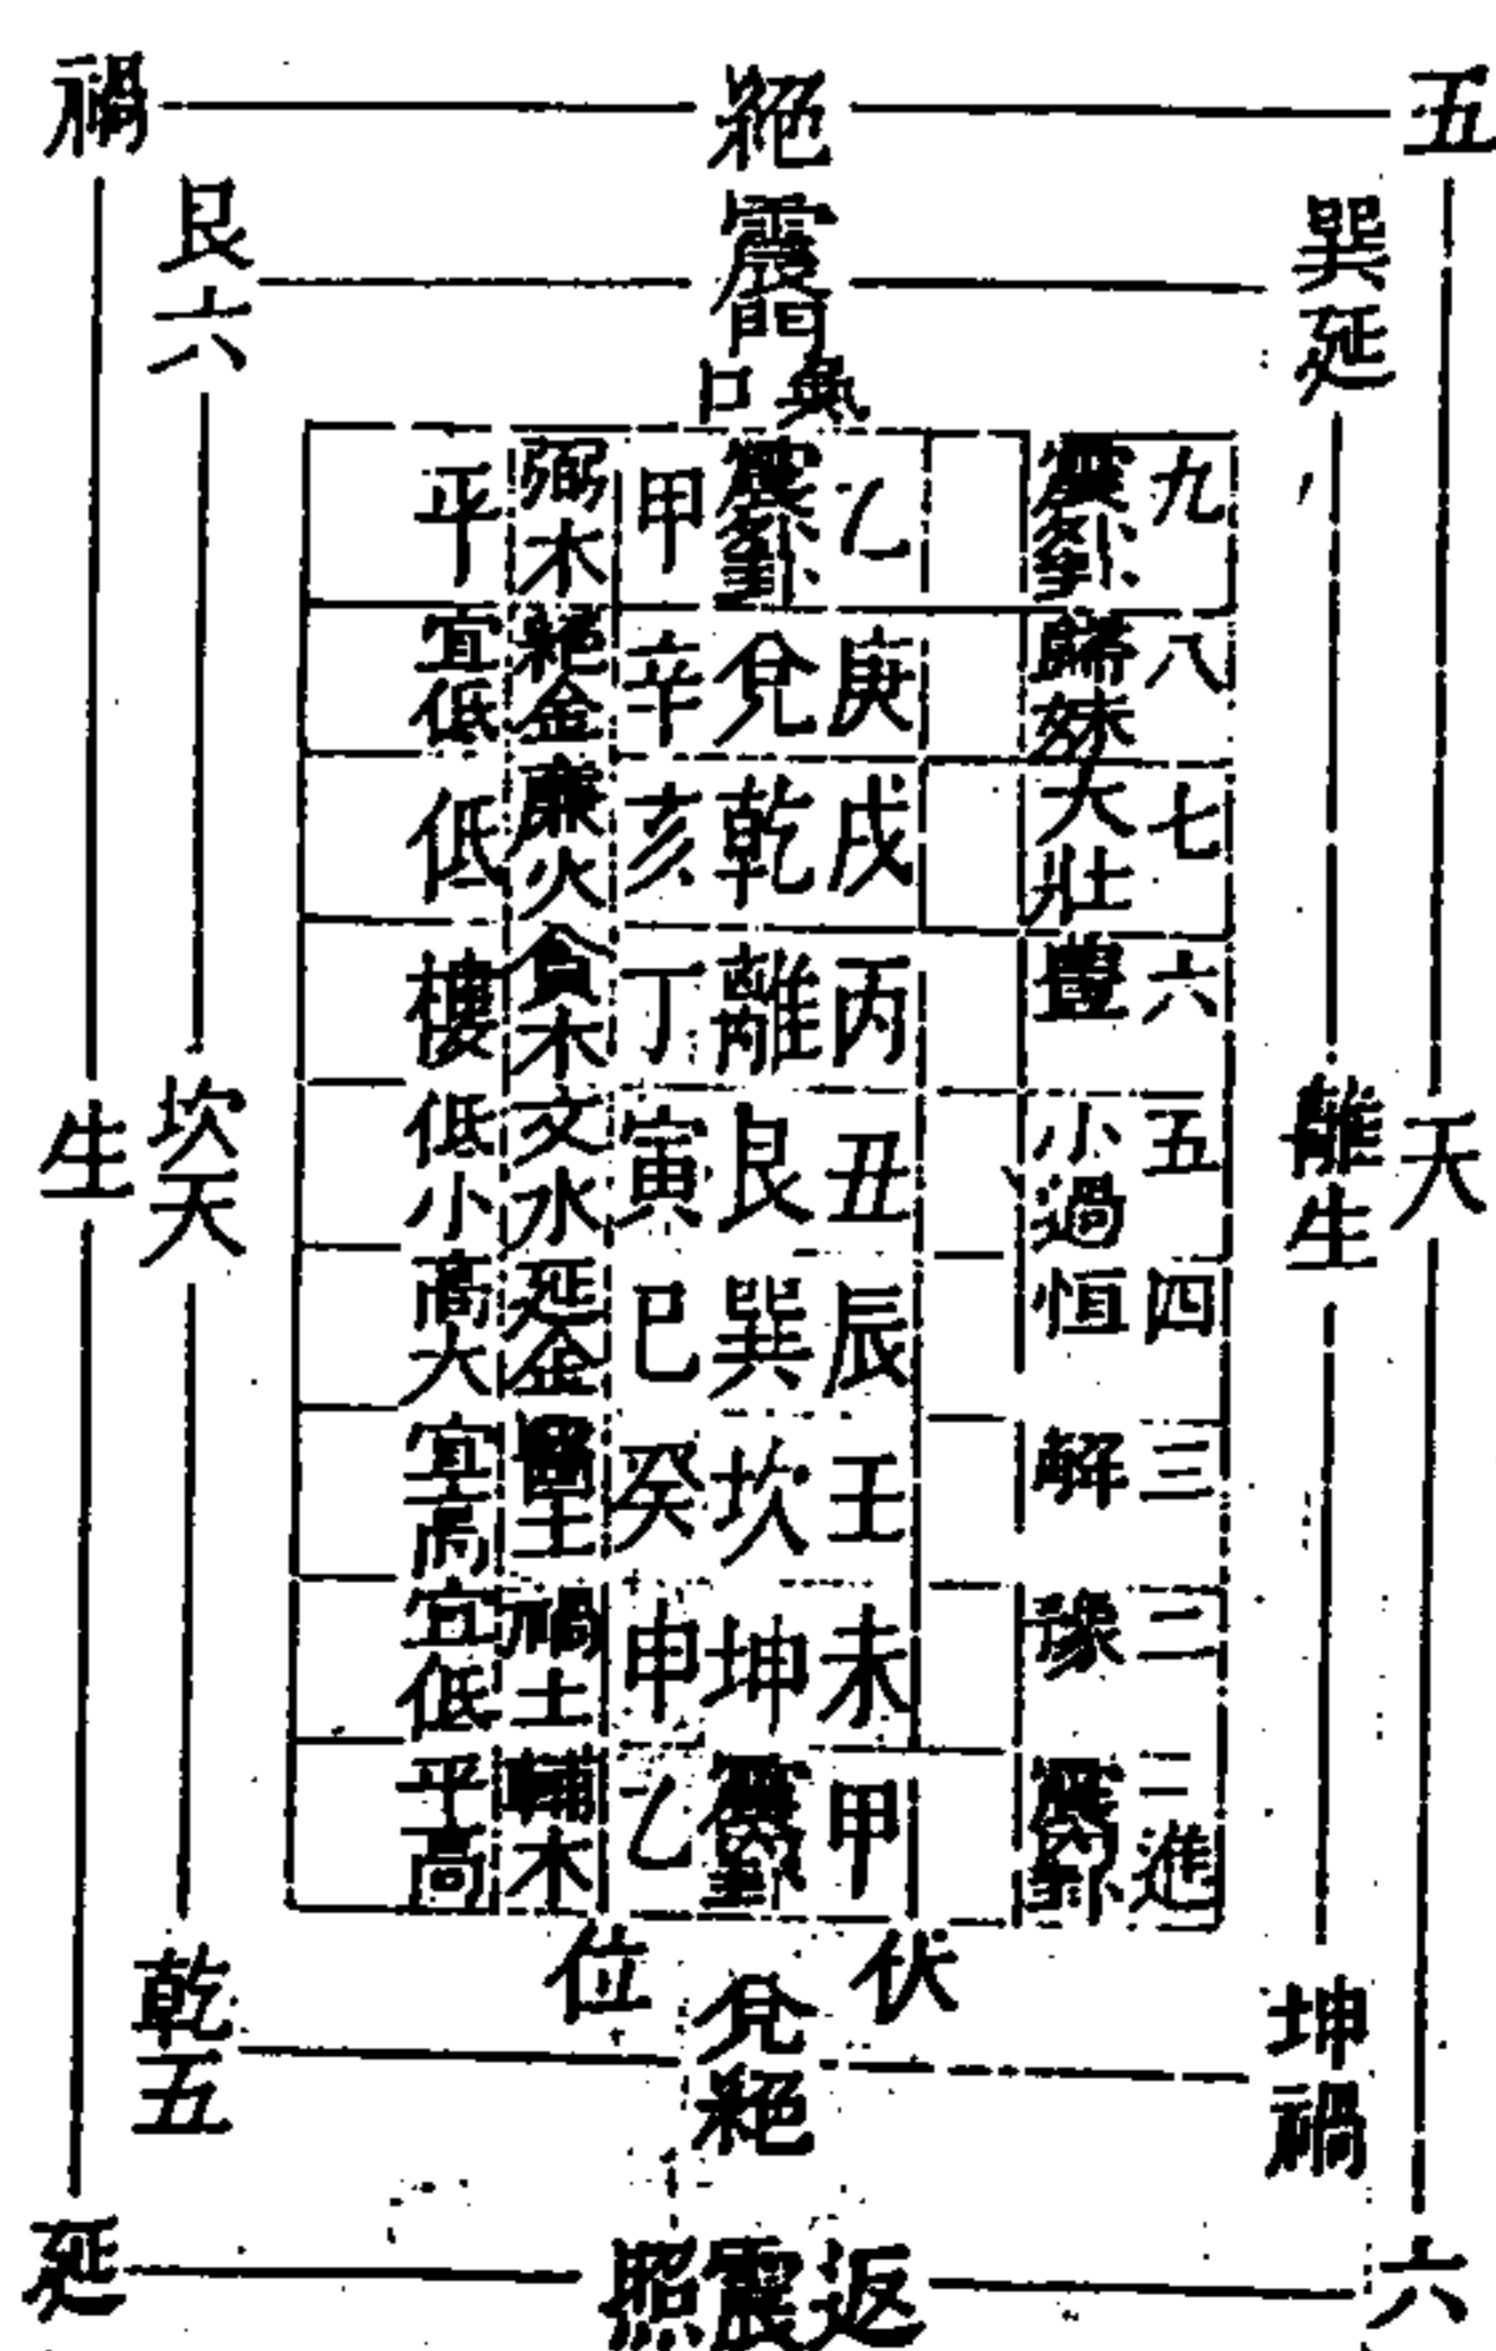 五 絕 禍
巽延 震門 艮六
氣口
九 震劉 乙 震劉 甲 弼木 平
八 歸妹 庚 兌 辛 絕金 宜低
七 大壯 戌 乾 亥 廉火 低
六 豐 丙 離 丁 貪木 樓
五 小過 丑 艮 寅 文水 低小
四 恒 辰 巽 巳 延金 高大
三 解 壬 坎 癸 土 宜高
二 豫 未 坤 申 禍土 宜低
一進 震劉 甲 震劉 乙 輔木 平高
天 離生 坎天 生
伏位
坤禍 兌絕 乾五
六 返震照 延